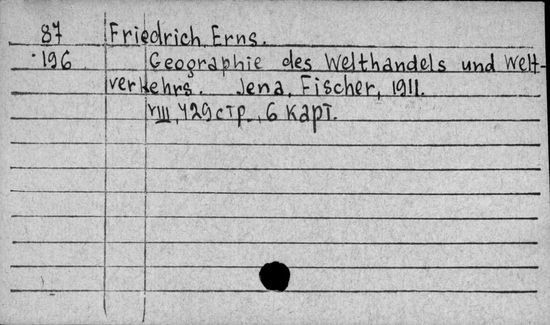 87 Friedrich, Erns.
196 Geographie des Welthandels und Welt-
verkehrs. Jena, Fischer, 1911.
VIII, 429 стр., 6 карт.